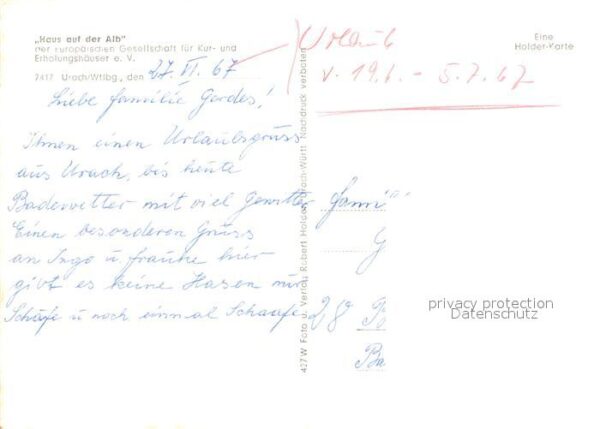 „Haus auf der Alb"
der europäischen Gesellschaft für Kur- und
Erholungshäuser e. V.
7417 Urach/Wttbg., den 27. VI. 67
Liebe Familie Gerdes!
Ihnen einen Urlaubsgruss
aus Urach, bis heute
Badewetter mit viel Gewitter
Einen besonderen Gruss
an Ingo u. Frauke hier
gibt es keine Hasen nur
Schafe u noch einmal Schaafe
427 W Foto u. Verlag Robert Holder, Urach-Württ. Nachdruck verboten
Urlaub
v. 19.6. - 5.7.67
Eine
Holder-Karte
Fami
G
28 B
Ba
privacy protection
Datenschutz